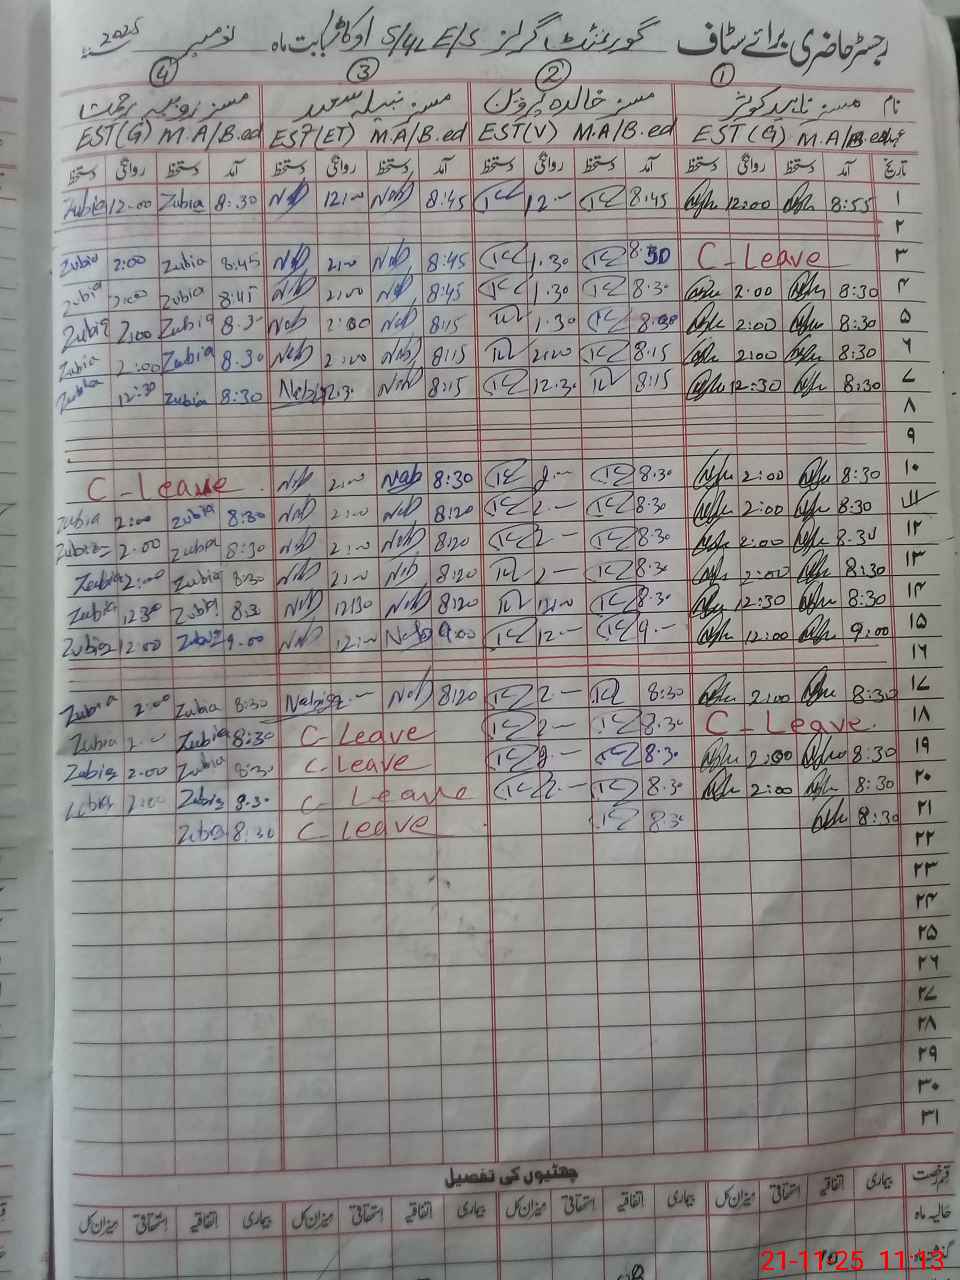 رجسٹر حاضری برائے سٹاف گورنمنٹ گرلز E/S 5/4L اوکاڑہ بابت ماہ نومبر 2025
① ② ③ ④
نام مسز ناہید کوثر مسز خالدہ پروین مسز نبیلہ سعید مسز روبینہ رحمت
EST(G) M.A/B.ed EST(V) M.A/B.ed EST(ET) M.A/B.ed EST(G) M.A/B.ed
تاریخ آمد دستخط روانگی دستخط آمد دستخط روانگی دستخط آمد دستخط روانگی دستخط آمد دستخط روانگی دستخط
۱ 8:55 12:00 8:45 12- 8:45 Nab 12:00 Nab 8:30 Zubia 12:00 Zubia
۲
۳ C-Leave 8:30 1.30 8:45 Nab 2:00 Nab 8:45 Zubia 2:00 Zubia
۴ 8:30 2:00 8.30 1.30 8:45 Nab 2:00 Nab 8:45 Zubia 2:00 Zubia
۵ 8:30 2:00 8.30 1.30 8:15 Nab 2:00 Nab 8.3- Zubia 2:00 Zubia
۶ 8:30 2:00 8.15 2:00 8:15 Nab 2:00 Nab 8.30 Zubia 2:00 Zubia
۷ 8:30 12:30 8:15 12.30 8:15 Nab 12.30 Nabia 8:30 Zubia 12:30 Zubia
۸
۹
۱۰ 8:30 2:00 8.30 2- 8:30 Nab 2:00 Nab C-Leave
۱۱ 8:30 2:00 8.30 2- 8:20 Nab 2:00 Nab 8:30 Zubia 2:00 Zubia
۱۲ 8:30 2:00 8.30 2- 8:20 Nab 2:00 Nab 8:30 Zubia 2:00 Zubia
۱۳ 8:30 2:00 8.30 2- 8:20 Nab 2:00 Nab 8:30 Zubia 2:00 Zubia
۱۴ 8:30 12:30 8.30 8:20 Nab 12:30 Nab 8:30 Zubia 12:30 Zubia
۱۵ 9:00 12:00 9.- 12- 9:00 Nab 12:00 Nab 9.00 Zubia 12:00 Zubia
۱۶
۱۷ 8:30 2:00 8:30 2- 8:20 Nab 2.- Nabia 8:30 Zubia 2:00 Zubia
۱۸ C-Leave 8.30 2- C-Leave 8:30 Zubia 2:00 Zubia
۱۹ 8:30 2:00 8.30 2- C-Leave 8:30 Zubia 2:00 Zubia
۲۰ 8:30 2:00 8.30 2- C-Leave 8.30 Zubia 2:00 Zubia
۲۱ 8:30 8.30 C-Leave 8:30 Zubia
۲۲
۲۳
۲۴
۲۵
۲۶
۲۷
۲۸
۲۹
۳۰
۳۱
چھٹیوں کی تفصیل
قسم رخصت بیماری اتفاقیہ استحقاقی میزان کل بیماری اتفاقیہ استحقاقی میزان کل بیماری اتفاقیہ استحقاقی میزان کل بیماری اتفاقیہ استحقاقی میزان کل
حالیہ ماہ
گذشتہ ماہ
21-11-25 11:13